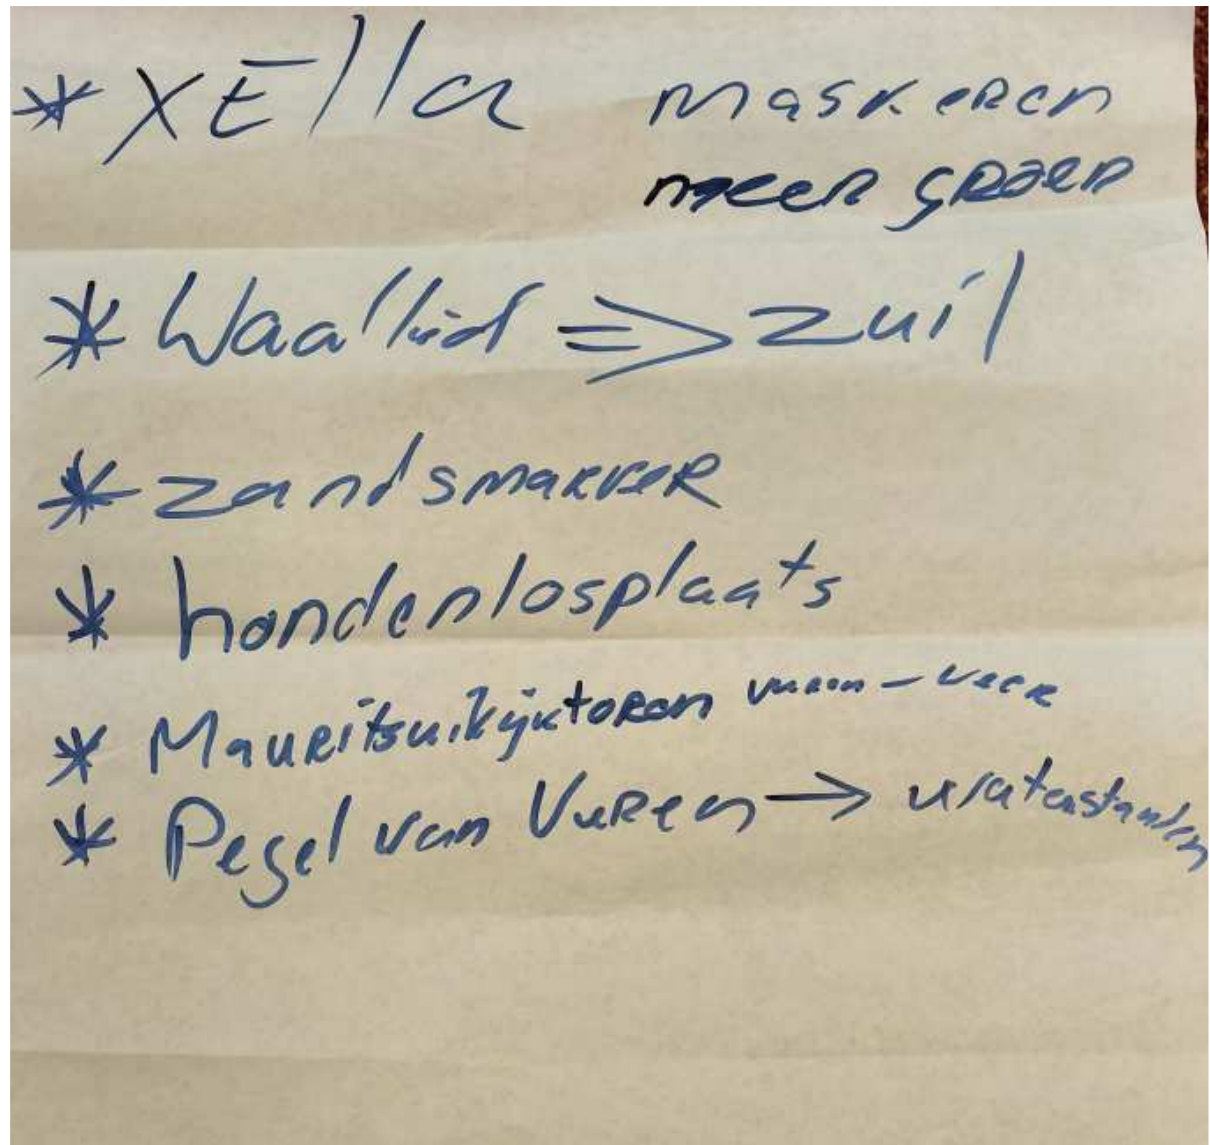 * XElla maskeren
meer groen
* Waallied => zuil
* zandsmarker
* hondenlosplaats
* Mauritsuikijktoren vuren - veer
* Pegel van Vuren → waterstanden